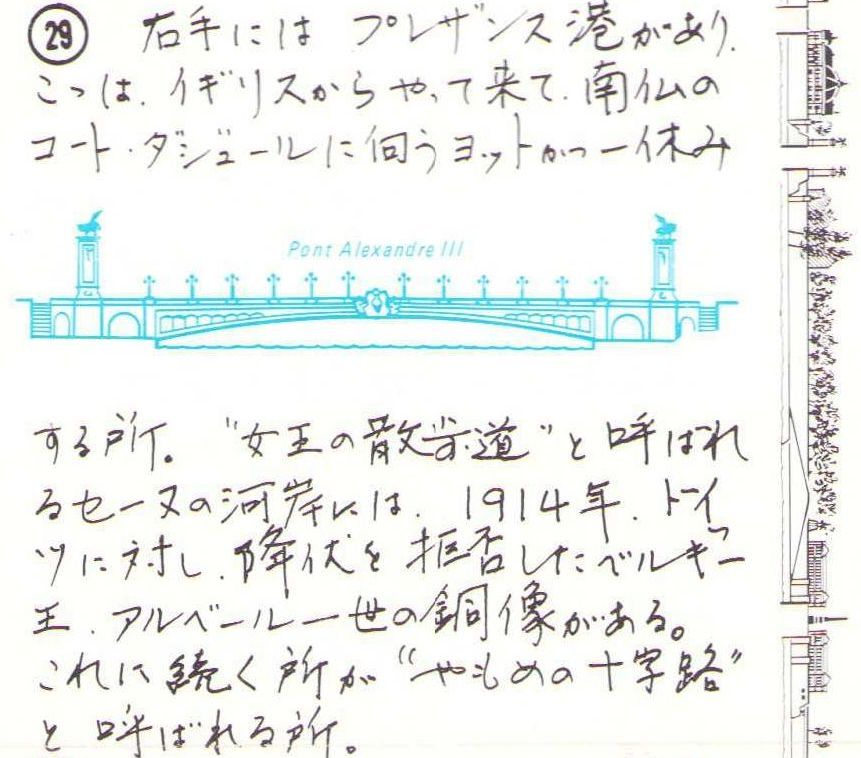 29 右手には プレザンス港があり、
こゝは、イギリスからやって来て、南仏の
コート・ダジュールに向うヨットが一休み
Pont Alexandre III
する所。“女王の散歩道”と呼ばれ
るセーヌの河岸には、1914年、ドイ
ツに対し、降伏を拒否したベルギー
王、アルベール一世の銅像がある。
これに続く所が“やもめの十字路”
と呼ばれる所。